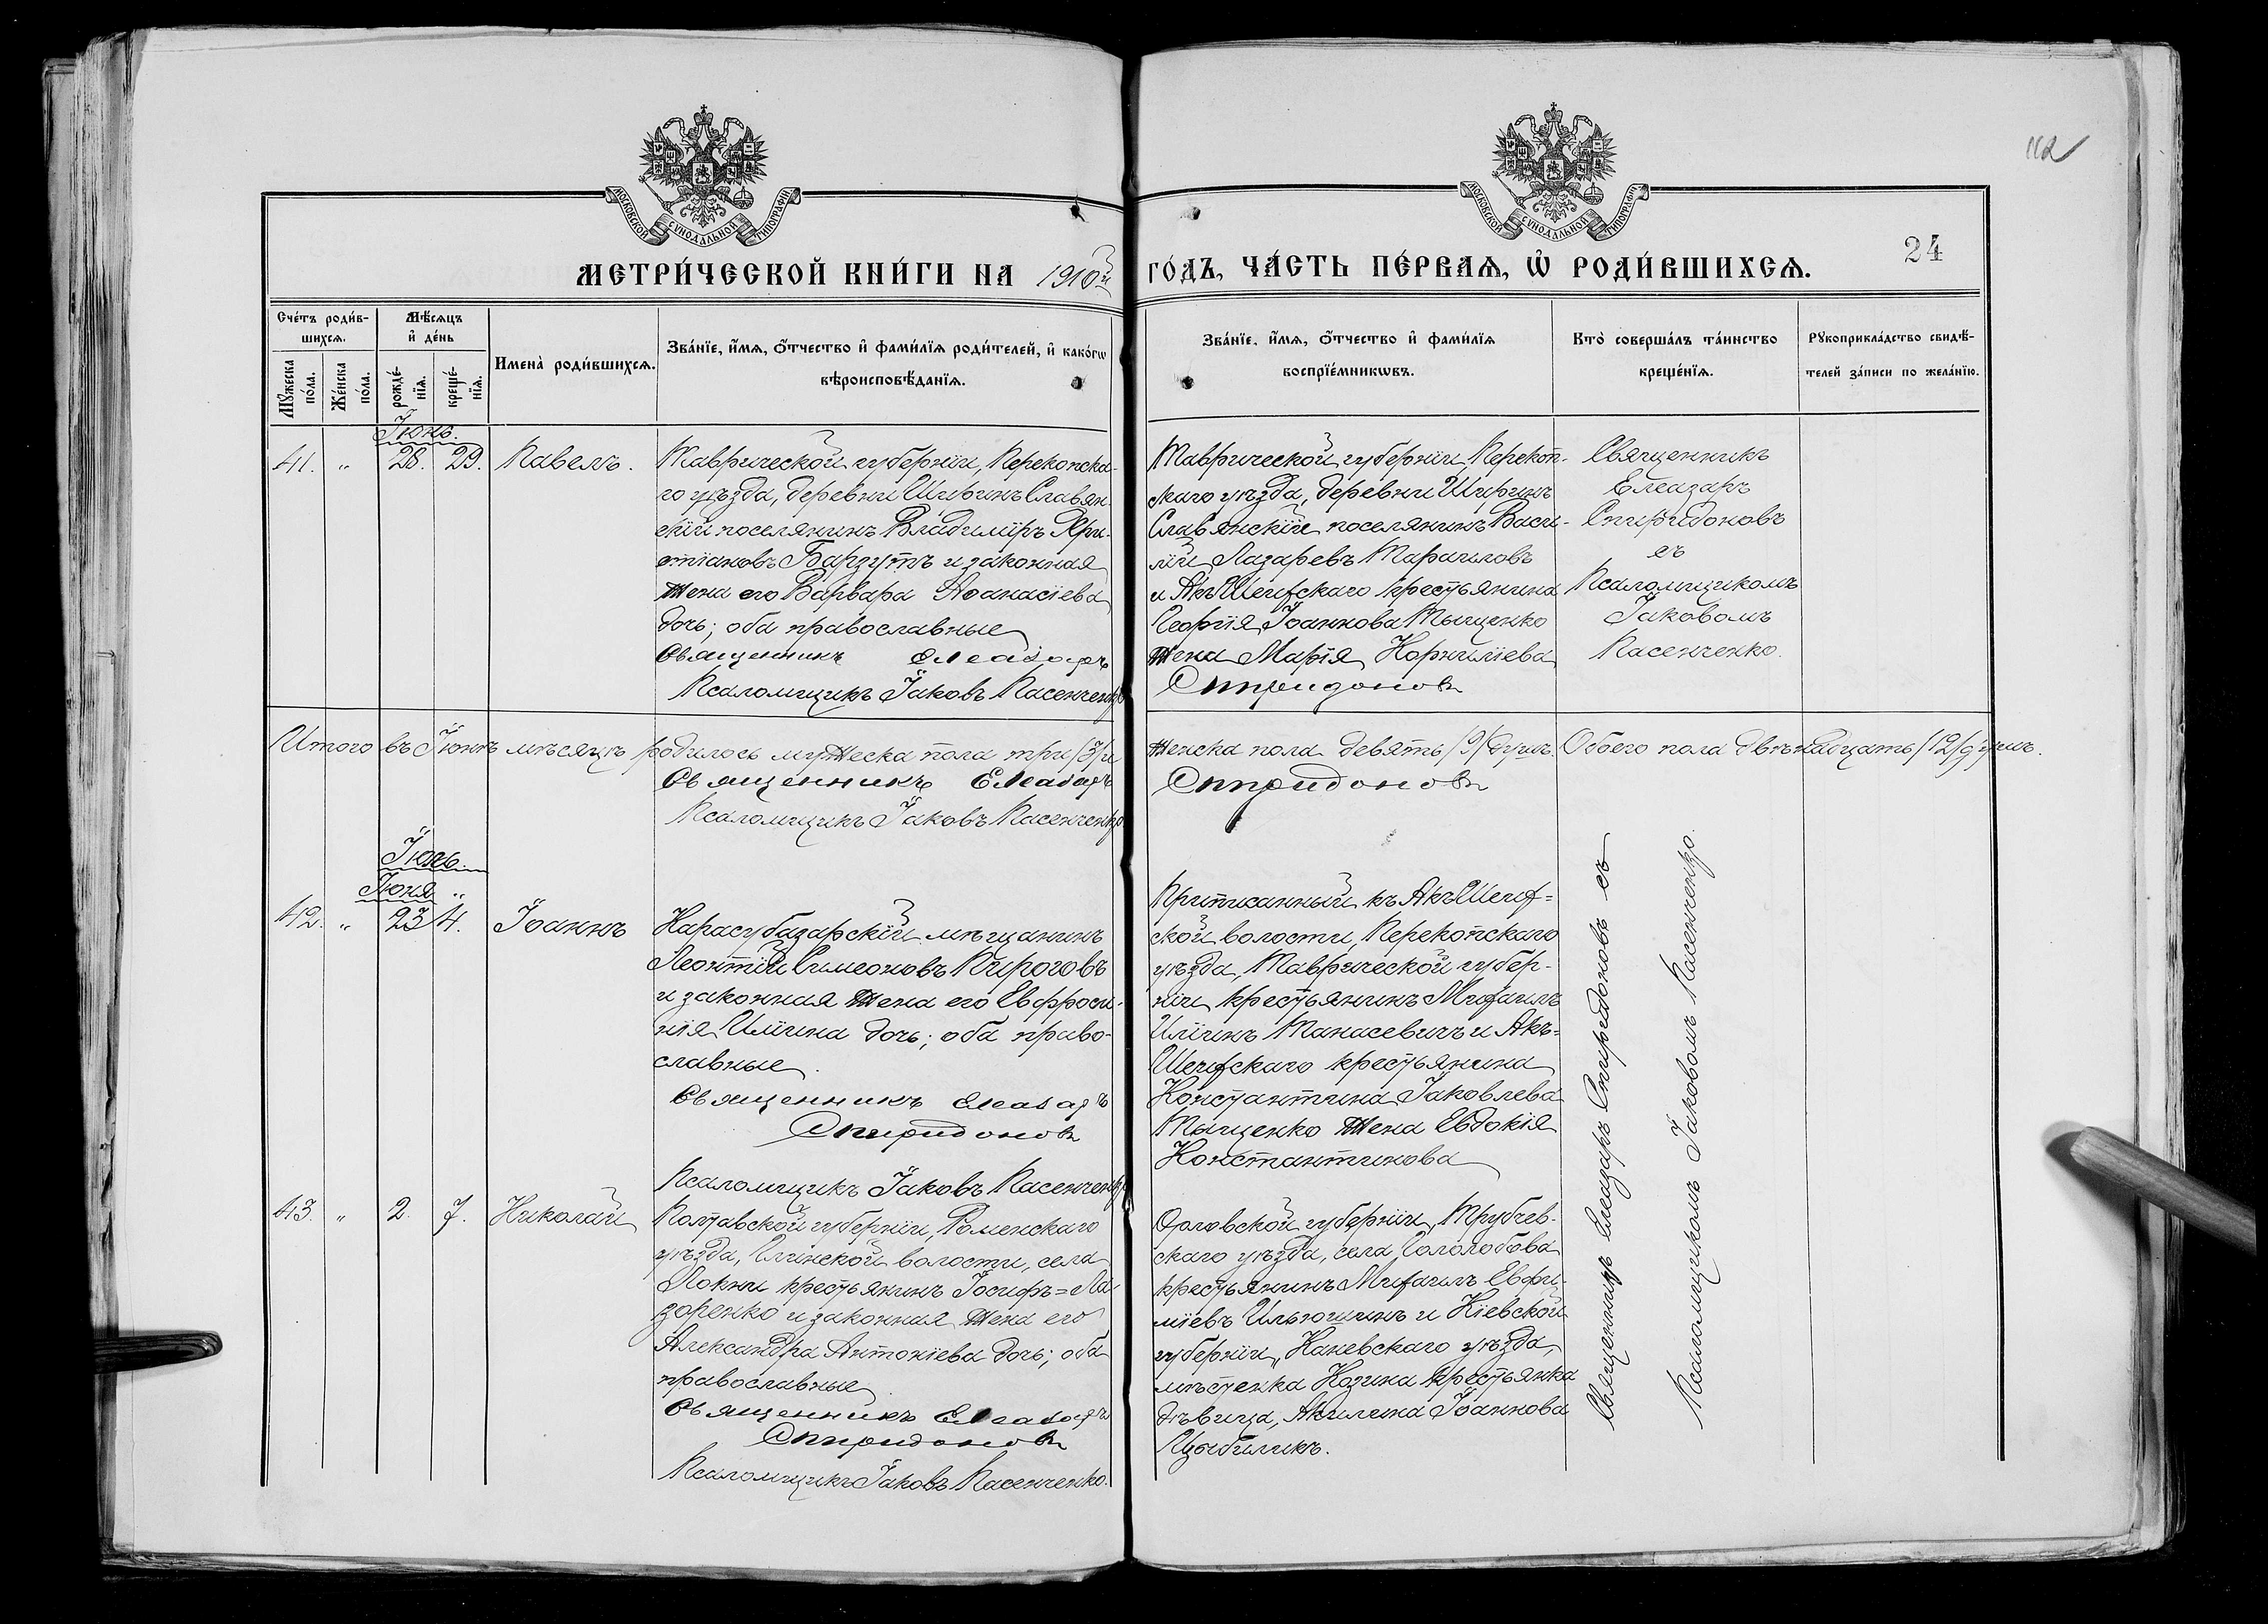 112
МОСКОВСКОЙ СѴНОДАЛЬНОЙ ТИПОГРАФІИ
МОСКОВСКОЙ СѴНОДАЛЬНОЙ ТИПОГРАФІИ
24
МЕТРИ́ЧЕСКОЙ КНИ́ГИ НА 1910й ГО́ДЪ, ЧА́СТЬ ПЕ́РВАѦ, Ѡ҆ РОДИ́ВШИХСѦ.
Сче́тъ роди́в-
шихсѧ.
Мꙋ́жеска
по́ла.
Же́нска
по́ла.
Мѣ́сѧцъ
и҆ де́нь
рожде́-
нїѧ.
креще́-
нїѧ.
Имена̀ роди́вшихсѧ.
Зва́нїе, и҆́мѧ, ѻ҆́тчество и҆ фами́лїѧ роди́телей, и҆ како́гѡ
вѣроисповѣ́данїѧ.
Зва́нїе, и҆́мѧ, ѻ҆́тчество и҆ фами́лїѧ
воспрїе́мникѡвъ.
Кто̀ соверша́лъ та́инство
креще́нїѧ.
Рꙋкоприкла́дство свидѣ́-
телей за́писи по жела́нїю.
Іюнь.
41. „ 28. 29. Павелъ.
Таврической губерніи, Перекопска-
го уѣзда, деревни Ширинъ Славян-
скій поселянинъ Владиміръ Хри-
стіановъ Баргутъ и законная
жена его Варвара Аѳанасіева
дочь; оба православные
Священникъ Елеазаръ
Псаломщикъ Іаковъ Пасенченко
Таврической губерніи, Перекоп-
скаго уѣзда, деревни Ширинъ
Славянскій поселянинъ Васи-
лій Лазаревъ
и Акъ Шейхскаго крестьянина
Георгія Іоаннова Тыщенко
жена Марія Корниліева
Спиридоновъ
Священникъ
Елеазаръ
Спиридоновъ
съ
Псаломщикомъ
Іаковомъ
Пасенченко.
Итого въ Іюнѣ мѣсяцѣ родилось мужеска пола три /3/ и женска пола девять /9/ душъ. Обоего пола двѣнадцать /12/ душъ.
Священникъ Елеазаръ Спиридоновъ
Псаломщикъ Іаковъ Пасенченко
Іюль.
Іюня „
42. „ 23 4. Іоаннъ
Карасубазарскій мѣщанинъ
Леонтій Симеоновъ Пироговъ
и законная жена его Евфроси-
нія Иліина дочь; оба право-
славные.
Священникъ Елеазаръ
Спиридоновъ
Псаломщикъ Іаковъ Пасенченко
Приписанный къ Акъ Шейх=
ской волости, Перекопскаго
уѣзда, Таврической губер-
ніи крестьянинъ Михаилъ
Иліинъ Танасевичъ и Акъ=
Шейхскаго крестьянина
Константина Іаковлева
Тыщенко жена Евдокія
Константинова
43. „ 2. 7. Николай
Полтавской губерніи, Роменскаго
уѣзда, Глинской волости, села
Локни крестьянинъ Іосифъ=Ла-
заренко и законная жена его
Александра Антоніева дочь; оба
православные
Священникъ Елеазаръ
Спиридоновъ
Псаломщикъ Іаковъ Пасенченко.
Орловской губерніи, Трубчев-
скаго уѣзда, села Гололобова
крестьянинъ Михаилъ Евфи-
міевъ Ильюшинъ и Кіевской
губерніи, Каневскаго уѣзда,
мѣстечка Козина крестьянка
дѣвица, Акилина Іоаннова
Цыбиликъ.
Священникъ Елеазаръ Спиридоновъ съ
Псаломщикомъ Іаковомъ Пасенченко.